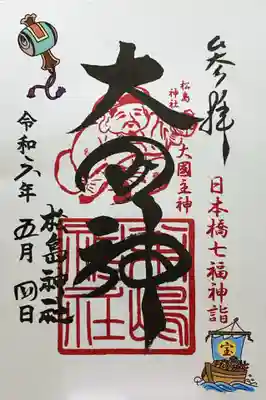 参拝
日本橋七福神詣
松島神社
大國主神
大国神
松島神社
令和六年
五月四日
松島神社
宝